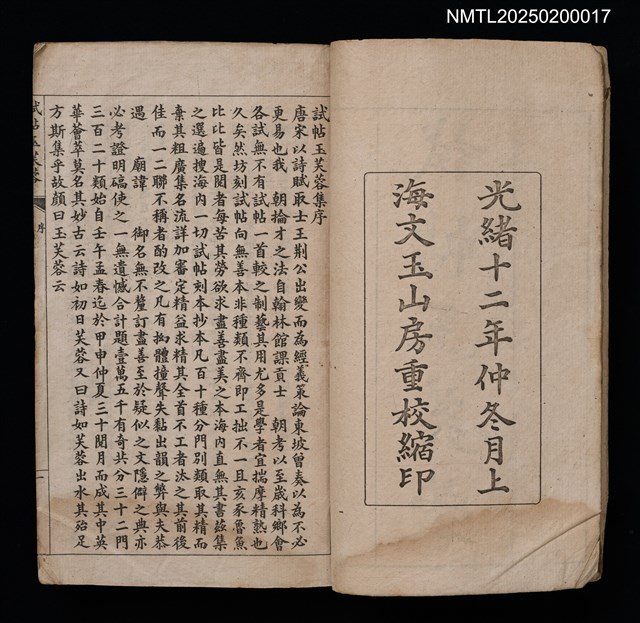 NMTL20250200017
光緒十二年仲冬月上
海文玉山房重校縮印
試帖玉芙蓉集序
唐宋以詩賦取士王荆公出變而為經義策論東坡曾奏以為不必
更易也我　朝掄才之法自翰林館課貢士　朝考以至歲科鄉會
各試無不有試帖一首較之制藝其用尤多是學者宜揣摩精熟也
久矣然坊刻試帖向無善本非種類不齊即工拙不一且亥豕魯魚
比比皆是閱者每苦其勞欲求盡善盡美之本海內直無其書茲集
之選遍搜海內一切試帖刻本抄本凡百十種分門別類取其精而
棄其粗廣集名流詳加審定精益求精其全首不工者汰之其前後
佳而一二聯不稱者酌改之凡有拗體撞聲失黏出韻之弊與夫恭
遇　廟諱　御名無不釐訂盡善至於疑似之文隱僻之典亦
必考證明確使之一無遺憾合計題壹萬五千有奇共分三十二門
三百二十類始自壬午孟春迄於甲申仲夏三十閱月而成其中英
華薈萃莫名其妙古云詩如初日芙蓉又曰詩如芙蓉出水其殆足
方斯集乎故顏曰玉芙蓉云
試帖玉芙蓉
序
一